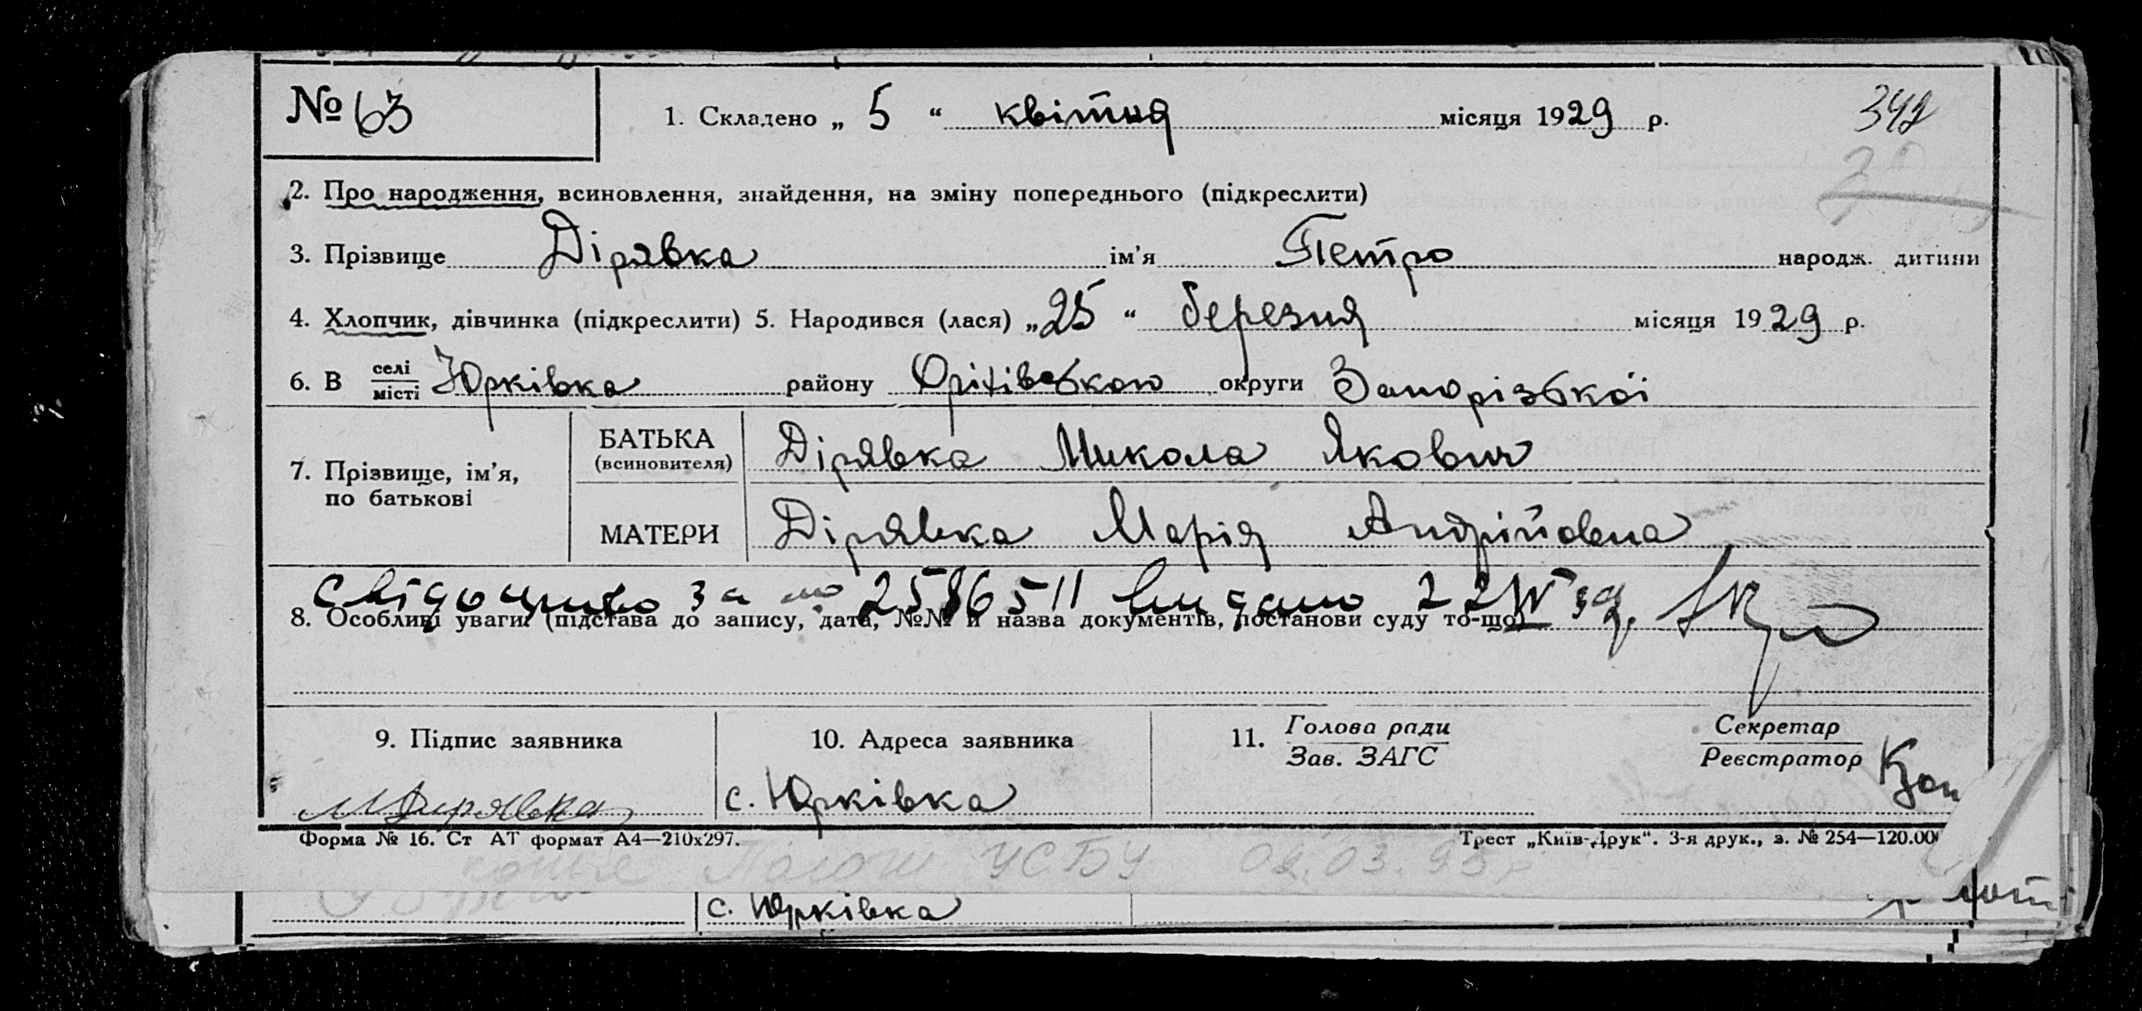 № 63 1. Складено „ 5 “ квітня місяця 1929 р. 342
2. Про народження, всиновлення, знайдення, на зміну попереднього (підкреслити)
3. Прізвище Дірявка ім’я Петро народж. дитини
4. Хлопчик, дівчинка (підкреслити) 5. Народився (лася) „25“ березня місяця 1929 р.
6. В селі / місті Юрківка району Оріхівського округи Запорізької
7. Прізвище, ім’я, по батькові
БАТЬКА (всиновителя) Дірявка Микола Якович
МАТЕРИ Дірявка Марія Андрійовна
свідоцтво за № 2586511 видано 22 IV
8. Особливі уваги (підстава до запису, дата, №№ й назва документів, постанови суду то-що)
9. Підпис заявника 10. Адреса заявника 11. Голова ради / Зав. ЗАГС Секретар / Реєстратор
М Дирявка с. Юрківка
Форма № 16. Ст АТ формат А4—210х297. Трест „Київ-Друк“. 3-я друк., з. № 254—120.00
УСБУ 02.03.95
с. Юрківка